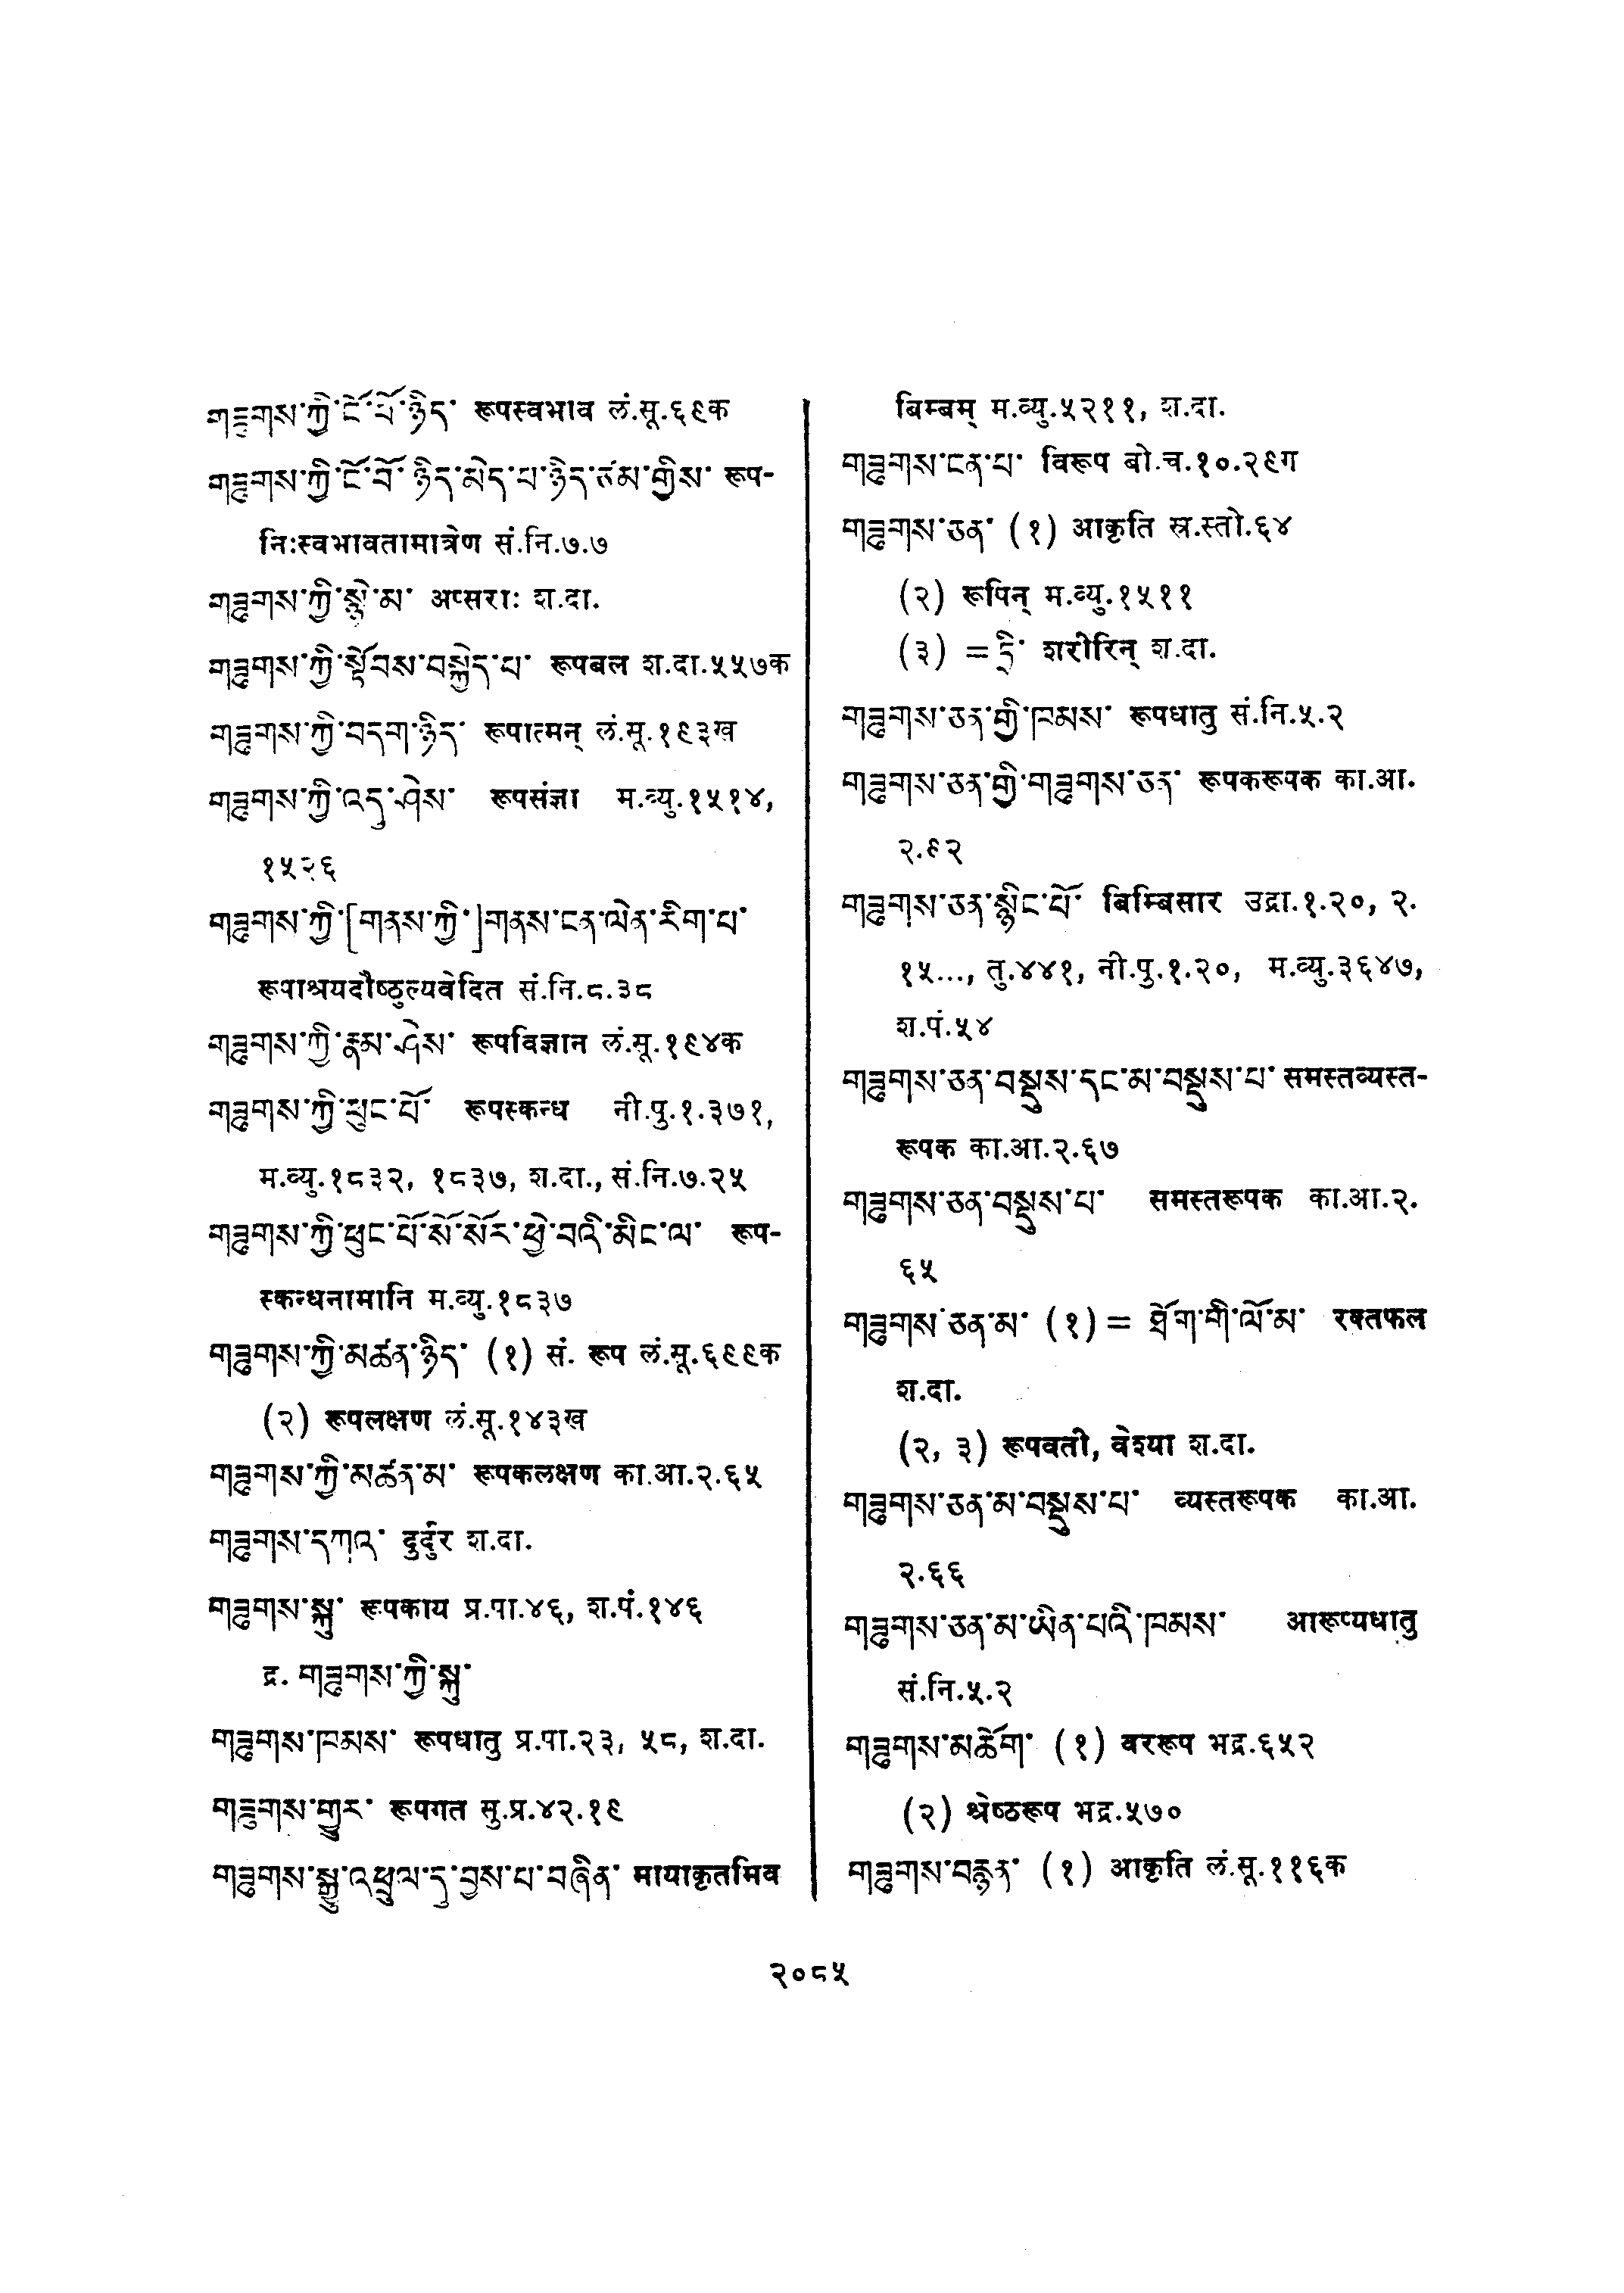 གཟུགས་ཀྱི་ངོ་བོ་ཉིད་ रूपस्वभाव लं.सू.६९क
གཟུགས་ཀྱི་ངོ་བོ་ཉིད་མེད་པ་ཉིད་ཙམ་གྱིས་ रूप-
निःस्वभावतामात्रेण सं.नि.७.७
གཟུགས་ཀྱི་སྙེ་མ་ अप्सराः श.दा.
གཟུགས་ཀྱི་སྟོབས་བསྐྱེད་པ་ रूपबल श.दा.५५७क
གཟུགས་ཀྱི་བདག་ཉིད་ रूपात्मन् लं.सू.१९३ख
གཟུགས་ཀྱི་འདུ་ཤེས་ रूपसंज्ञा म.व्यु.१५१४,
१५२६
གཟུགས་ཀྱི་[གནས་ཀྱི་]གནས་ངན་ལེན་རིག་པ་
रूपाश्रयदौष्ठुल्यवेदित सं.नि.८.३८
གཟུགས་ཀྱི་རྣམ་ཤེས་ रूपविज्ञान लं.सू.१९४क
གཟུགས་ཀྱི་ཕུང་པོ་ रूपस्कन्ध नी.पु.१.३७१,
म.व्यु.१८३२, १८३७, श.दा., सं.नि.७.२५
གཟུགས་ཀྱི་ཕུང་པོ་སོ་སོར་ཕྱེ་བའི་མིང་ལ་ रूप-
स्कन्धनामानि म.व्यु.१८३७
གཟུགས་ཀྱི་མཚན་ཉིད་ (१) सं. रूप लं.सू.६९९क
(२) रूपलक्षण लं.सू.१४३ख
གཟུགས་ཀྱི་མཚན་མ་ रूपकलक्षण का.आ.२.६५
གཟུགས་དཀའ་ दुर्दुर श.दा.
གཟུགས་སྐུ་ रूपकाय प्र.पा.४६, श.पं.१४६
द्र. གཟུགས་ཀྱི་སྐུ་
གཟུགས་ཁམས་ रूपधातु प्र.पा.२३, ५८, श.दा.
གཟུགས་གྱུར་ रूपगत सु.प्र.४२.१९
གཟུགས་སྒྱུ་འཕྲུལ་དུ་བྱས་པ་བཞིན་ मायाकृतमिव
बिम्बम् म.व्यु.५२११, श.दा.
གཟུགས་ངན་པ་ विरूप बो.च.१०.२९ग
གཟུགས་ཅན་ (१) आकृति स्र.स्तो.६४
(२) रूपिन् म.व्यु.१५११
(३) = དྲི་ शरीरिन् श.दा.
གཟུགས་ཅན་གྱི་ཁམས་ रूपधातु सं.नि.५.२
གཟུགས་ཅན་གྱི་གཟུགས་ཅན་ रूपकरूपक का.आ.
२.९२
གཟུགས་ཅན་སྙིང་པོ་ बिम्बिसार उद्रा.१.२०, २.
१५..., तु.४४१, नी.पु.१.२०, म.व्यु.३६४७,
श.पं.५४
གཟུགས་ཅན་བསྡུས་དང་མ་བསྡུས་པ་ समस्तव्यस्त-
रूपक का.आ.२.६७
གཟུགས་ཅན་བསྡུས་པ་ समस्तरूपक का.आ.२.
६५
གཟུགས་ཅན་མ་ (१) = ཐོག་གི་ལོ་མ་ रक्तफल
श.दा.
(२, ३) रूपवती, वेश्या श.दा.
གཟུགས་ཅན་མ་བསྡུས་པ་ व्यस्तरूपक का.आ.
२.६६
གཟུགས་ཅན་མ་ཡིན་པའི་ཁམས་ आरूप्यधातु
सं.नि.५.२
གཟུགས་མཆོག་ (१) वररूप भद्र.६५२
(२) श्रेष्ठरूप भद्र.५७०
གཟུགས་བརྙན་ (१) आकृति लं.सू.११६क
२०८५